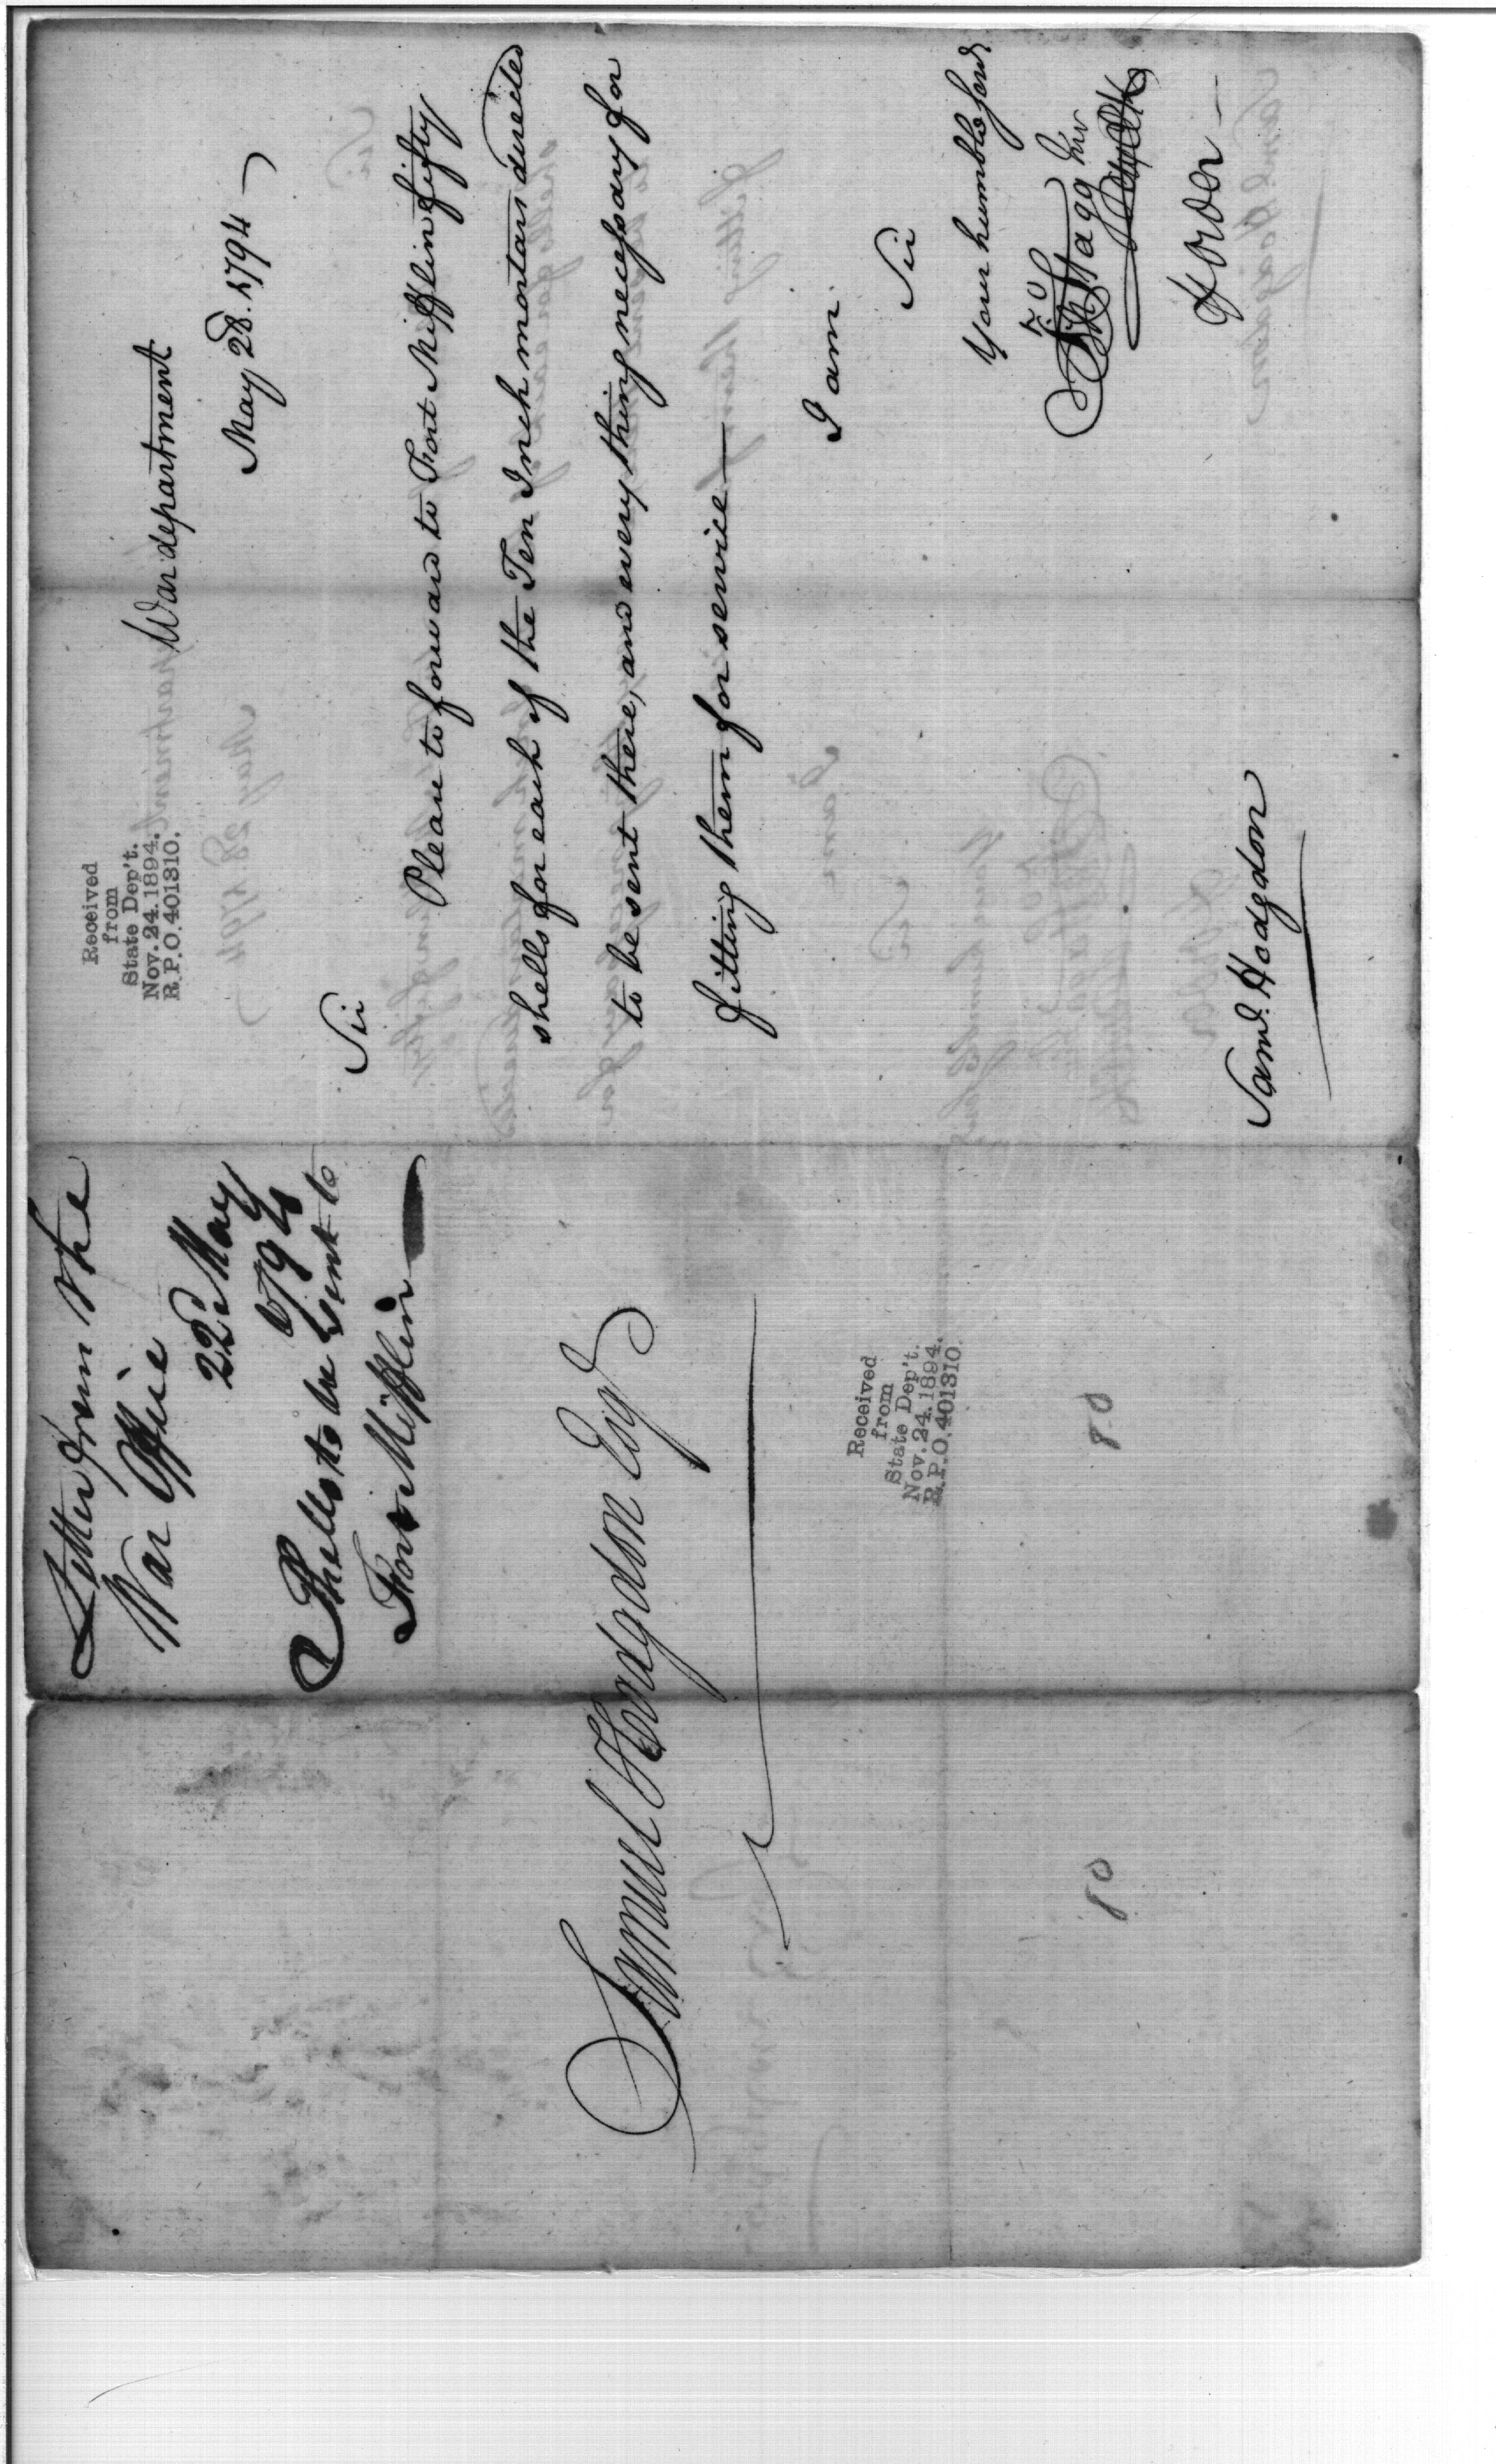 Received
from
State Dep't.
Nov. 24. 1894.
R.P.O. 401310.
War department
May 28. 1794
Sir
Please to forward to Fort Mifflin fifty
shells for each of the Ten Inch mortars directed
to be sent there, and every thing necessary for
fitting them for service—
I am
Sir
Your humble Servt
Jno Stagg Junr
Saml. Hodgdon
Letter from the
War Office
22d May
1794
Shells to be sent to
Fort Mifflin
Samuel Hodgdon Esqr
Received
from
State Dep't.
Nov. 24. 1894.
R.P.O. 401310.
80
80